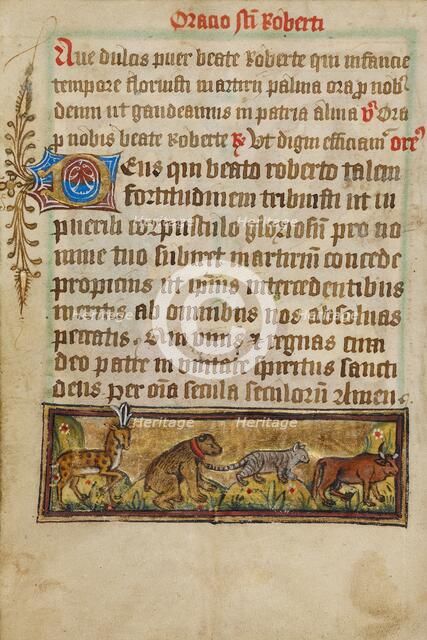 Oracio sti Roberti
Aue dulcis puer beate Roberte qui infancie
tempore floruisti martirii palma ora p nob'
deum ut gaudeamus in patria alma V' Ora
p nobis beate Roberte R Vt digni efficiam' Ore'
Deus qui beato roberto talem
fortitudinem tribuisti ut in
puerili corpusculo gloriosū pro no
mine tuo subiret martiriū concede
propicius ut eius intercedentibus
meritis ab omnibus nos absoluas
peccatis. Qui viuis et regnas cum
deo patre in vnitate spiritus sancti
deus per oīa secula seculorū Amen
Heritage
Heritage
Heritage
Heritage